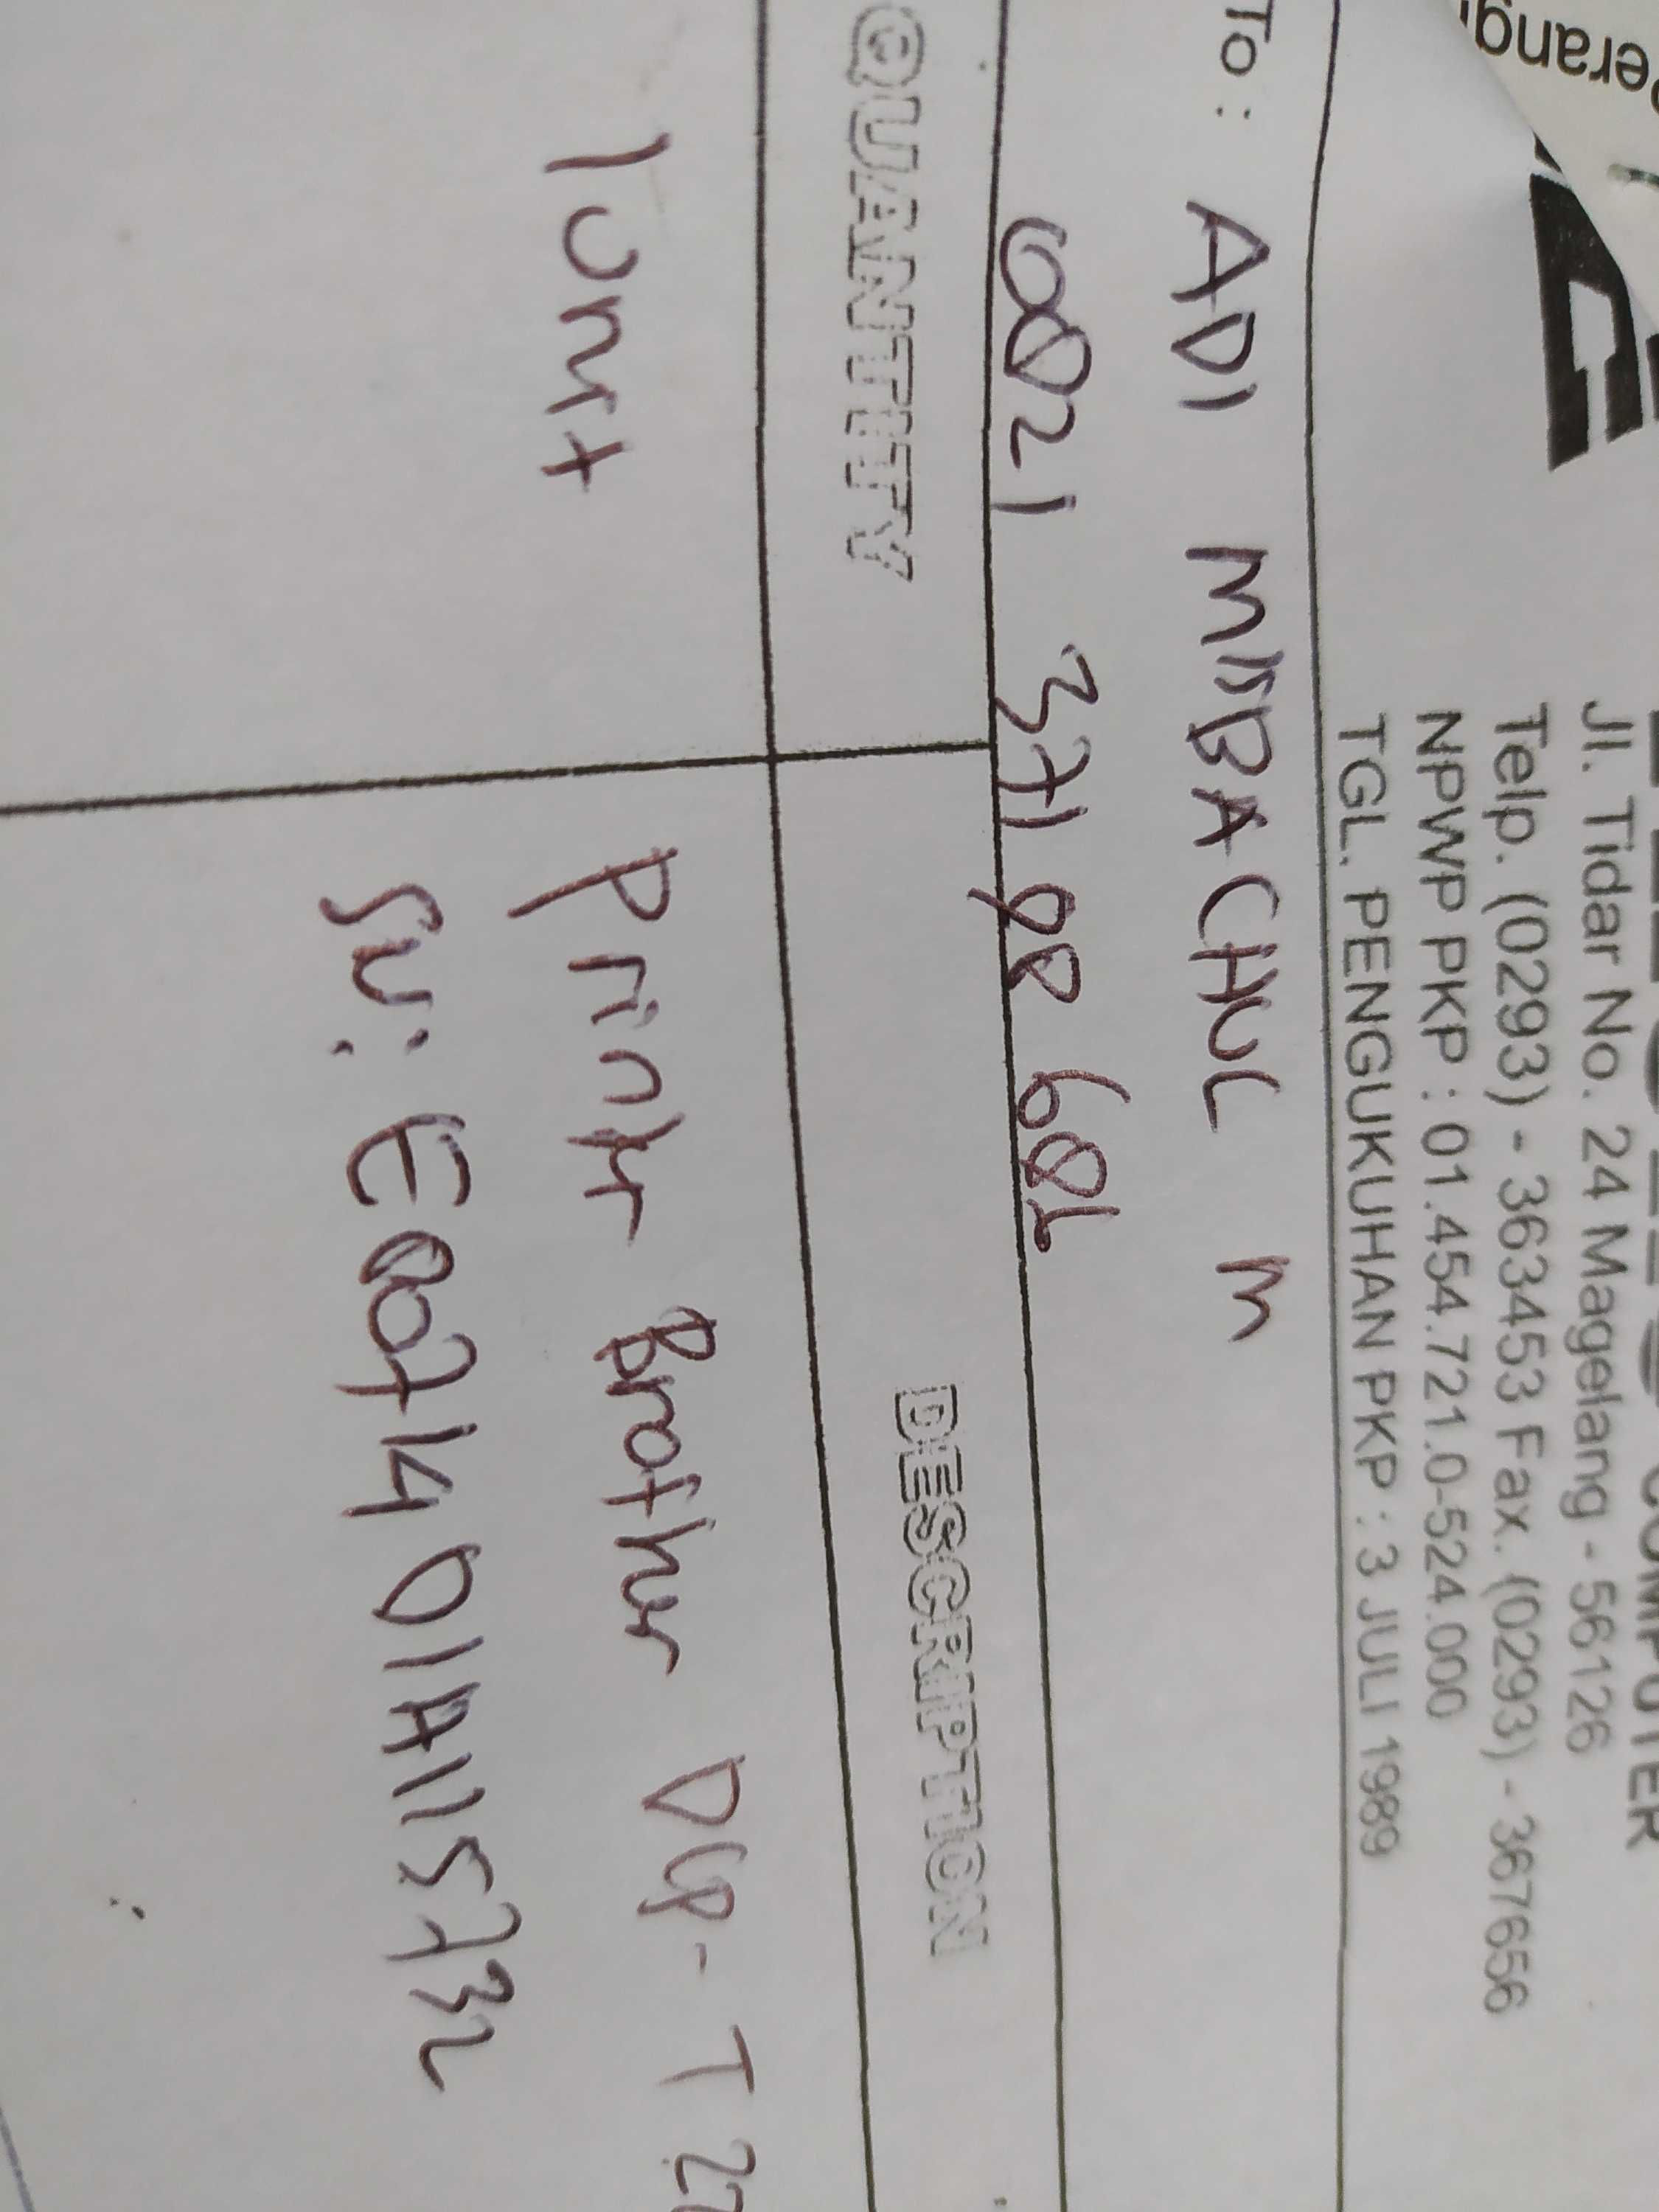 COMPUTER
Jl. Tidar No. 24 Magelang - 56126
Telp. (0293) - 363453 Fax. (0293) - 367656
NPWP PKP : 01.454.721.0-524.000
TGL. PENGUKUHAN PKP : 3 JULI 1989
To : ADI MISBACHUL M
QUANTITY DESCRIPTION
1 Unit Printer Brother DCP-T
SN: E